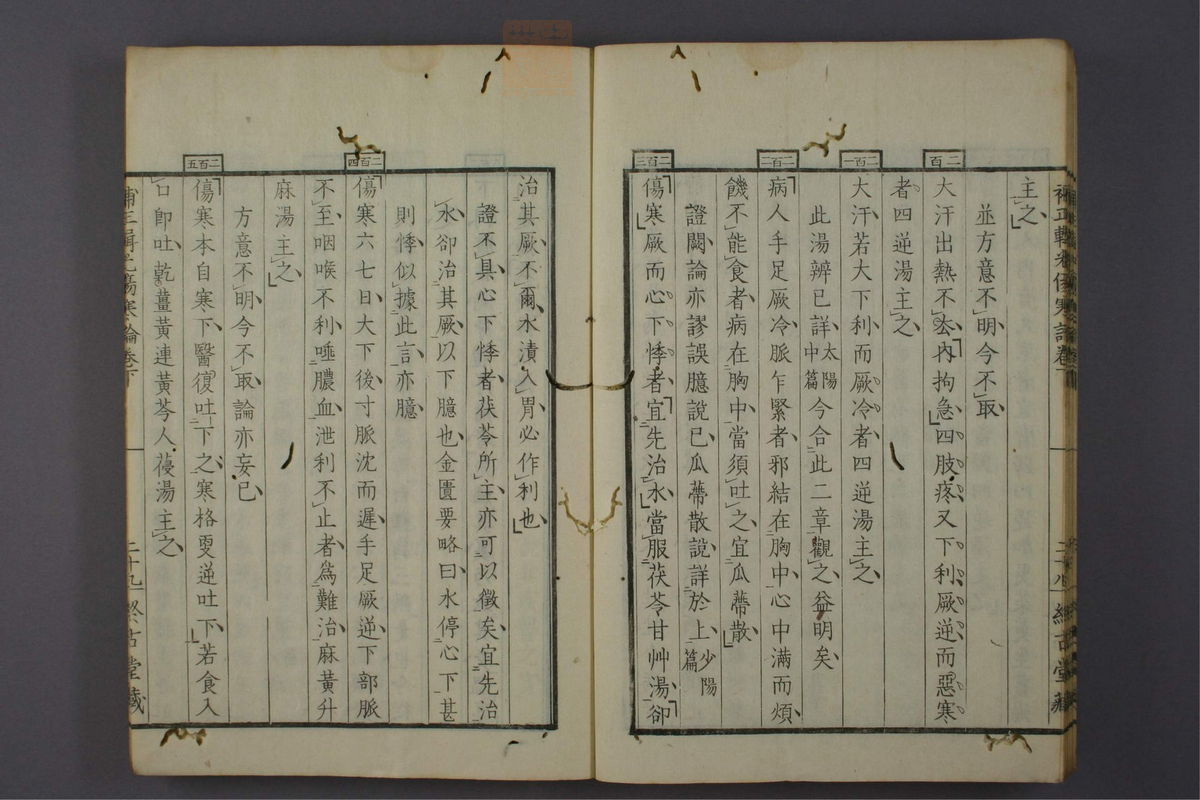 主之
並方意不明今不取
二百
大汗出熱不去內拘急四肢疼又下利厥逆而惡寒
者四逆湯主之
二百一
大汗若大下利而厥冷者四逆湯主之
此湯辨已詳太陽中篇今合此二章觀之益明矣
二百二
病人手足厥冷脈乍緊者邪結在胸中心中滿而煩
饑不能食者病在胸中當須吐之宜瓜蔕散
證闕論亦謬誤臆說已瓜蔕散說詳於上少陽篇
二百三
傷寒厥而心下悸者宜先治水當服茯苓甘艸湯卻
治其厥不爾水漬入胃必作利也
證不具心下悸者茯苓所主亦可以徵矣宜先治
水卻治其厥以下臆也金匱要略曰水停心下甚
則悸似據此言亦臆
二百四
傷寒六七日大下後寸脈沈而遲手足厥逆下部脈
不至咽喉不利唾膿血泄利不止者爲難治麻黃升
麻湯主之
方意不明今不取論亦妄已
二百五
傷寒本自寒下醫復吐下之寒格更逆吐下若食入
口卽吐乾薑黃連黃芩人葠湯主之
傷寒論卷下
二十九
終古堂藏